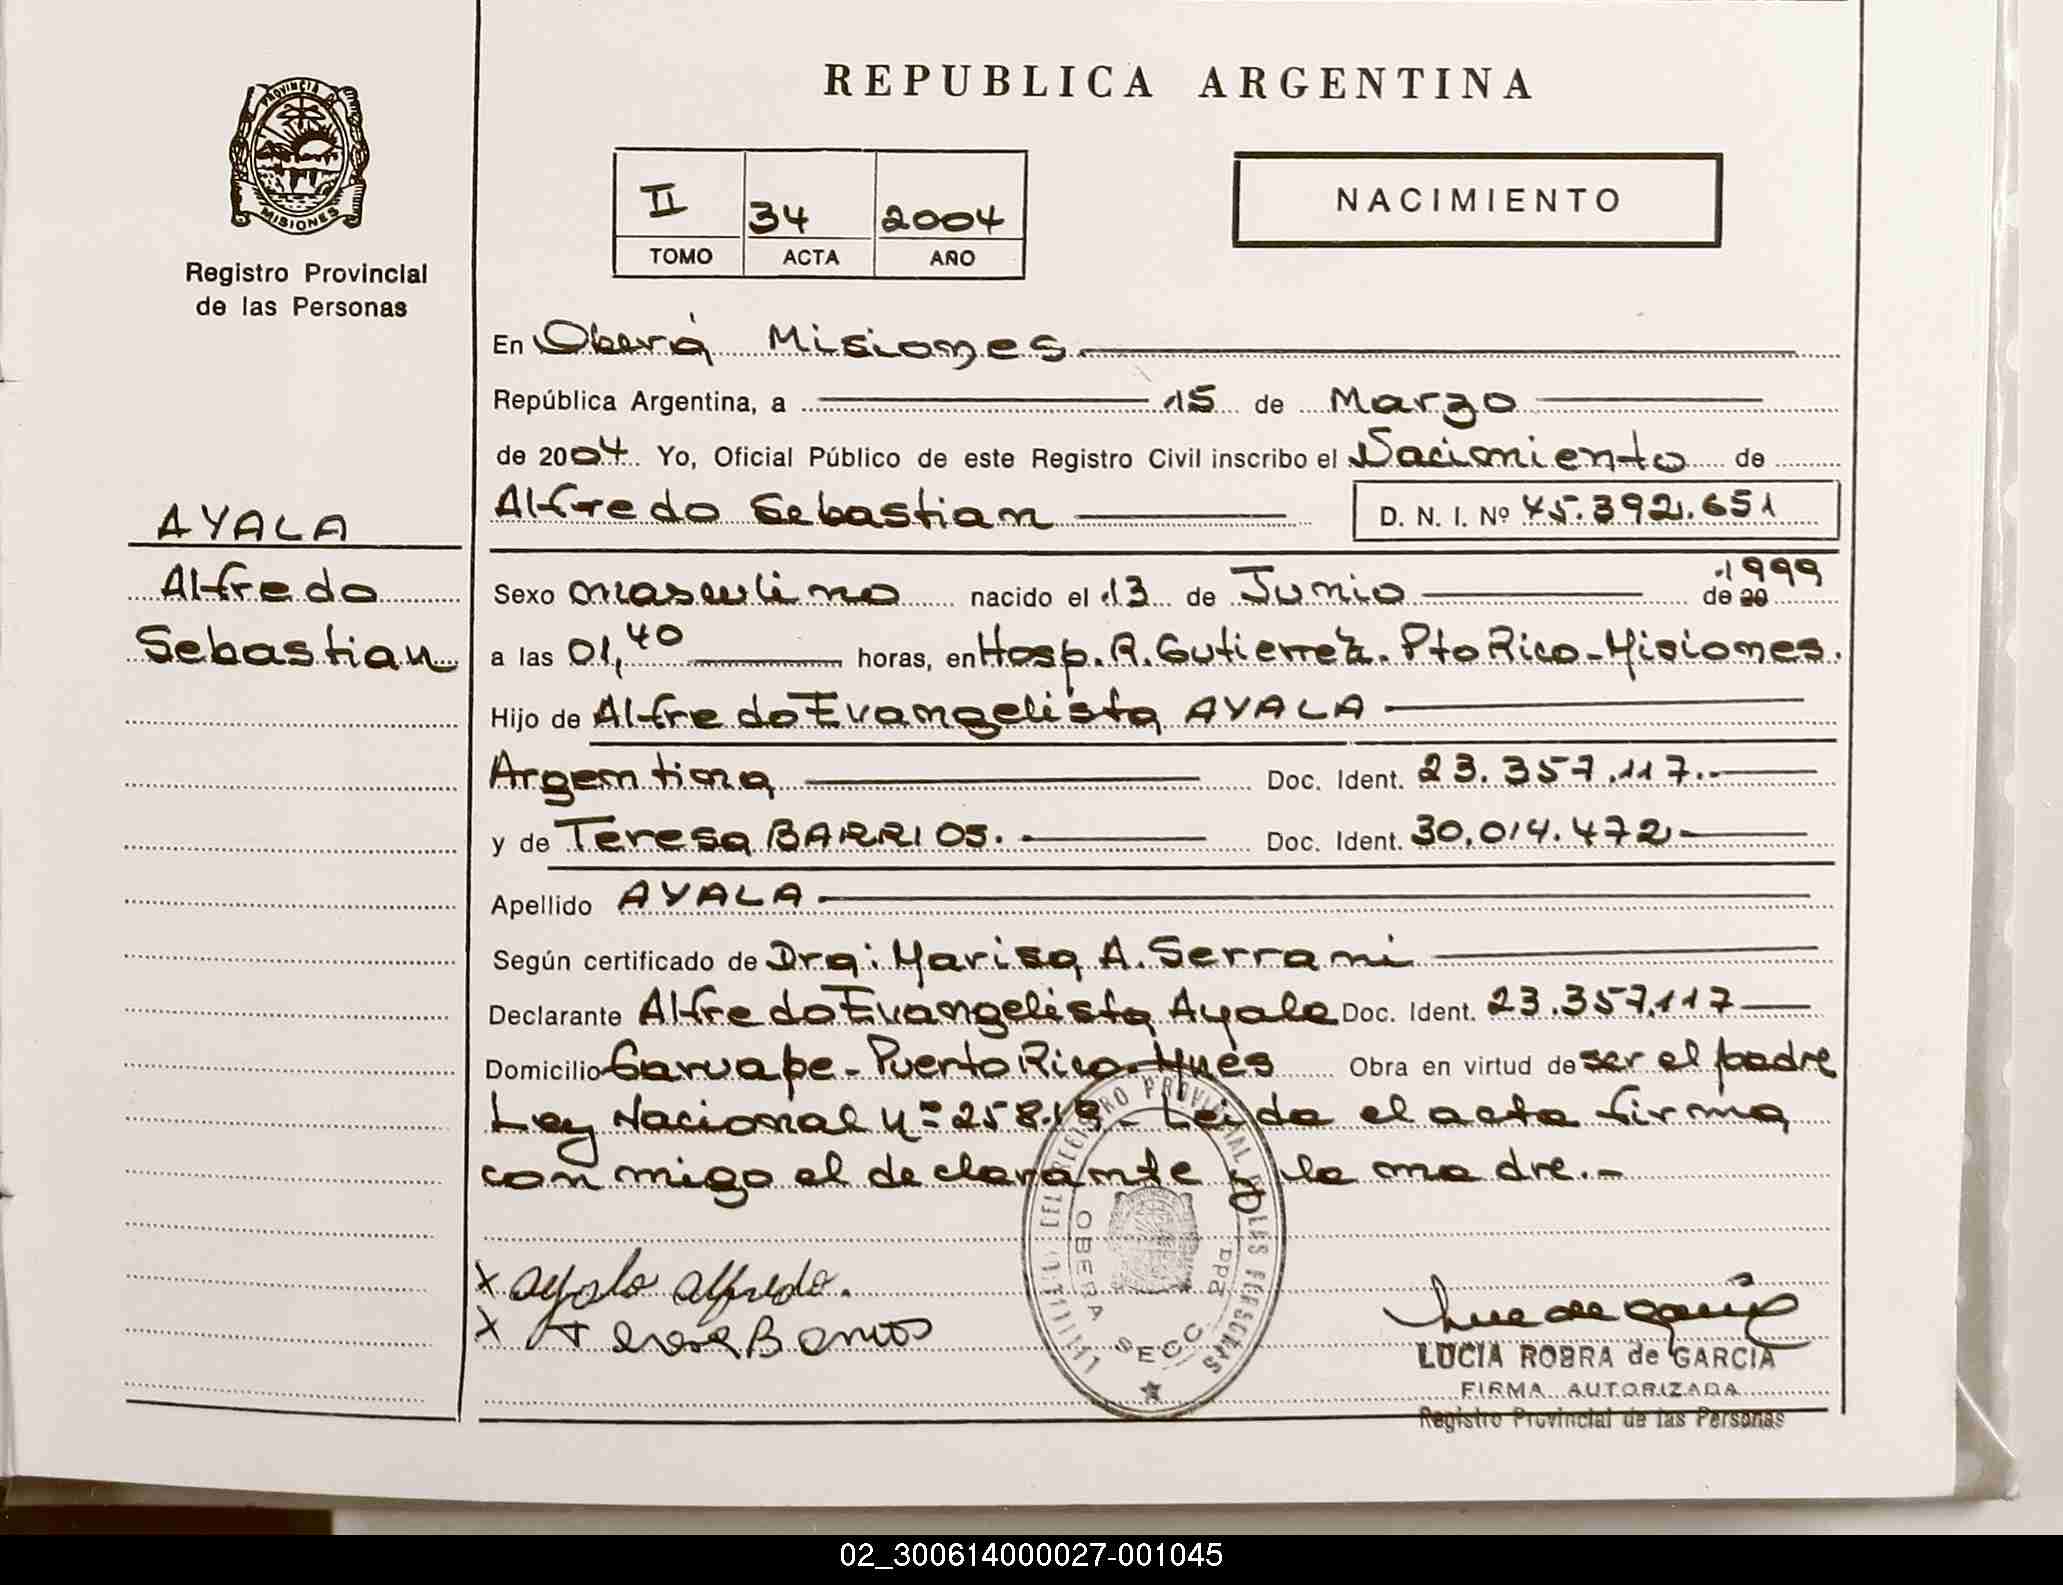 REPUBLICA ARGENTINA
PROVINCIA DE
MISIONES
Registro Provincial
de las Personas
II 34 2004
TOMO ACTA AÑO
NACIMIENTO
En Oberá Misiones
República Argentina, a 15 de Marzo
de 2004. Yo, Oficial Público de este Registro Civil inscribo el Nacimiento de
Alfredo Sebastian D. N. I. Nº 45.392.651
AYALA
Alfredo
Sebastian
Sexo masculino nacido el 13 de Junio de 20 1999
a las 01,40 horas, en Hosp. R. Gutierrez. Pto Rico - Misiones.
Hijo de Alfredo Evangelista AYALA
Argentina Doc. Ident. 23.357.117.
y de Teresa BARRIOS. Doc. Ident. 30.014.472
Apellido AYALA
Según certificado de Dra: Marisa A. Serrani
Declarante Alfredo Evangelista Ayala Doc. Ident. 23.357.117
Domicilio Garuape - Puerto Rico - Mnes Obra en virtud de ser el padre
Ley Nacional nº 258.19 - Leida el acta firma
conmigo el declarante y la madre.-
x Ayala Alfredo.
x Teresa Barrios
DEL REGISTRO PROVINCIAL DE LAS PERSONAS
OBERA SECC.
LUCIA ROBRA de GARCIA
FIRMA AUTORIZADA
Registro Provincial de las Personas
02_300614000027-001045